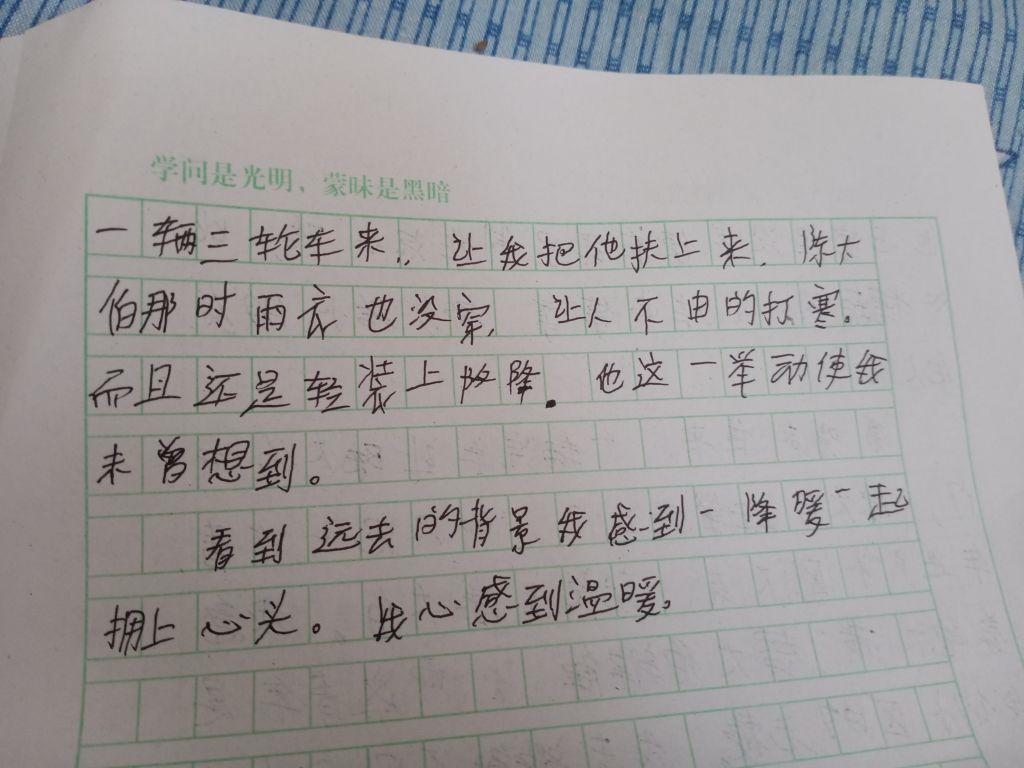 学问是光明，蒙昧是黑暗
一辆三轮车来，让我把他扶上来，陈大
伯那时雨衣也没穿，让人不由的打寒。
而且还是轻装上阵。他这一举动使我
未曾想到。
看到远去的背景我感到一降暖一起
拥上心头。我心感到温暖。